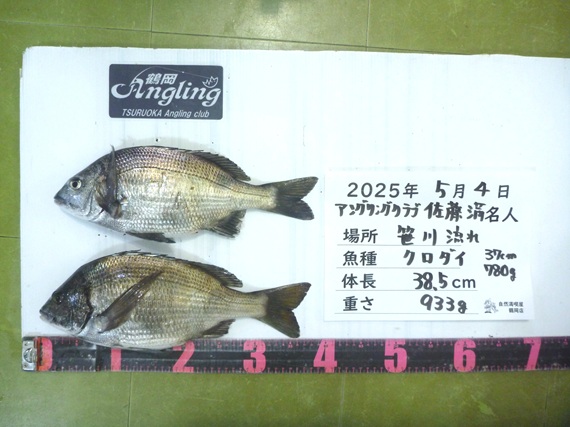 鶴岡
Angling
TSURUOKA Angling club
2025年 5月 4日
アングリングクラブ 佐藤 涓名人
場所 笹川流れ
魚種 クロダイ 37cm 780g
体長 38.5cm
重さ 933g
自然満喫屋
鶴岡店
0 1 2 3 4 5 6 7